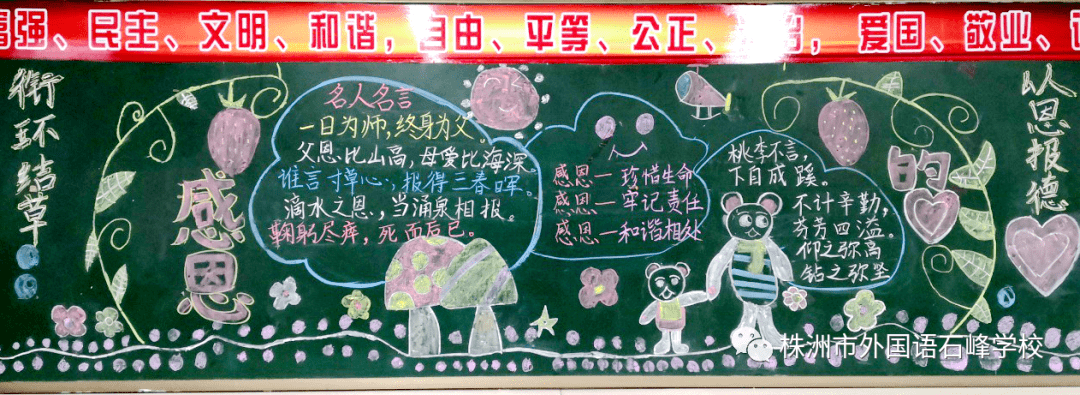 富强、民主、文明、和谐，自由、平等、公正、
，爱国、敬业、
衔环结草
感恩
名人名言
一日为师，终身为父。
父恩比山高，母爱比海深。
谁言寸草心，报得三春晖。
滴水之恩，当涌泉相报。
鞠躬尽瘁，死而后已。
感恩—珍惜生命
感恩—牢记责任
感恩—和谐相处
桃李不言，
下自成蹊。
不计辛勤，
芬芳四溢。
仰之弥高
钻之弥坚
的
以恩报德
株洲市外国语石峰学校